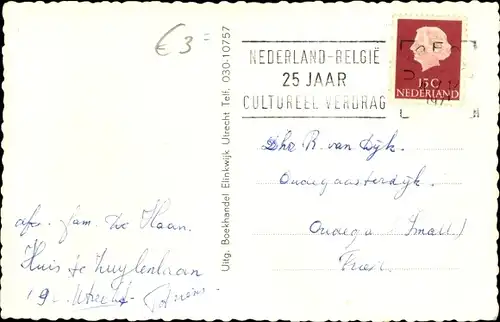 € 3 =
NEDERLAND-BELGIË
25 JAAR
CULTUREEL VERDRAG
15C
NEDERLAND
Uitg. Boekhandel Elinkwijk Utrecht Telf. 030-10757
Dhr R. van Dijk.
Oudegaasterdijk.
Oudega (Small.)
afz. fam. de Haan.
Huis te Zuylenlaan
19 Utrecht